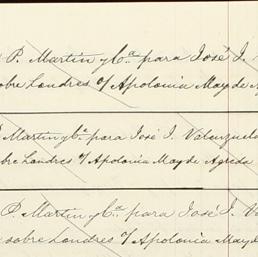 P. Martin y Cª para José I.
sobre Londres o/ Apolonia May de A
Martin y Cª para José I. Valenzuela
bre Londres o/ Apolonia May de Agreda
P. Martin y Cª para José I. Va
sobre Londres o/ Apolonia May de